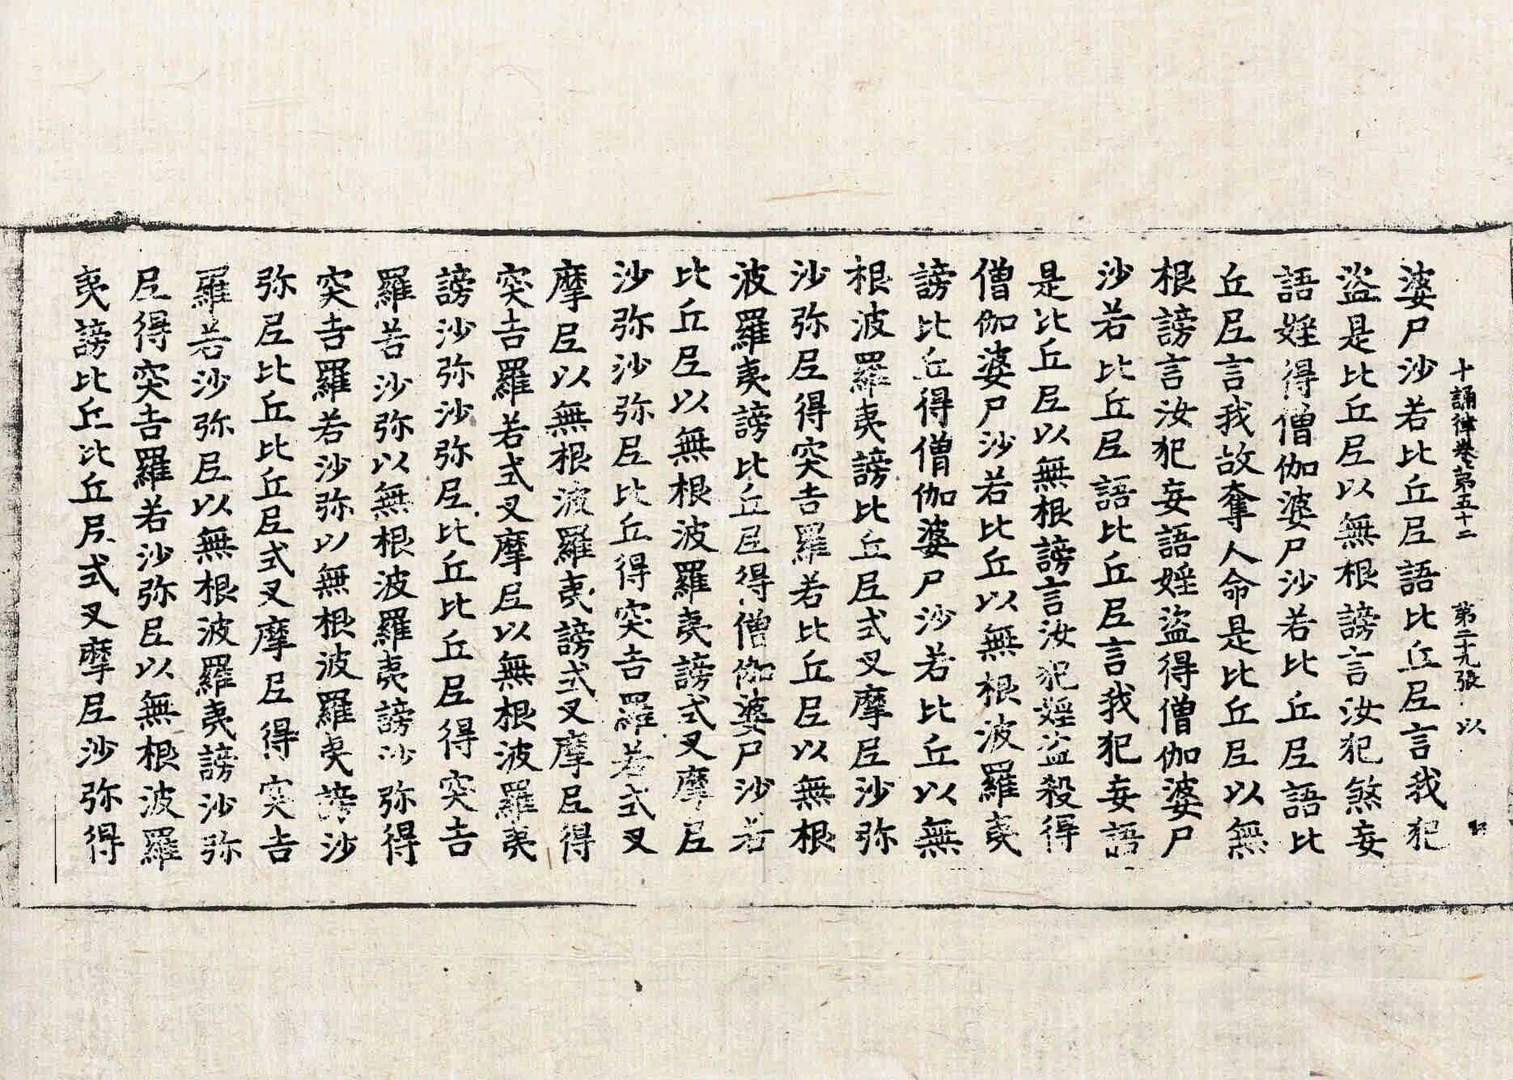 十誦律卷第五十二 第二十九張 以
婆尸沙若比丘尼語比丘尼言我犯
盜是比丘尼以無根謗言汝犯煞妄
語婬得僧伽婆尸沙若比丘尼語比
丘尼言我故奪人命是比丘尼以無
根謗言汝犯妄語婬盜得僧伽婆尸
沙若比丘尼語比丘尼言我犯妄語
是比丘尼以無根謗言汝犯婬盜殺得
僧伽婆尸沙若比丘以無根波羅夷
謗比丘得僧伽婆尸沙若比丘以無
根波羅夷謗比丘尼式叉摩尼沙弥
沙弥尼得突吉羅若比丘尼以無根
波羅夷謗比丘尼得僧伽婆尸沙若
比丘尼以無根波羅夷謗式叉摩尼
沙弥沙弥尼比丘得突吉羅若式叉
摩尼以無根波羅夷謗式叉摩尼得
突吉羅若式叉摩尼以無根波羅夷
謗沙弥沙弥尼比丘比丘尼得突吉
羅若沙弥以無根波羅夷謗沙弥得
突吉羅若沙弥以無根波羅夷謗沙
弥尼比丘比丘尼式叉摩尼得突吉
羅若沙弥尼以無根波羅夷謗沙弥
尼得突吉羅若沙弥尼以無根波羅
夷謗比丘比丘尼式叉摩尼沙弥得